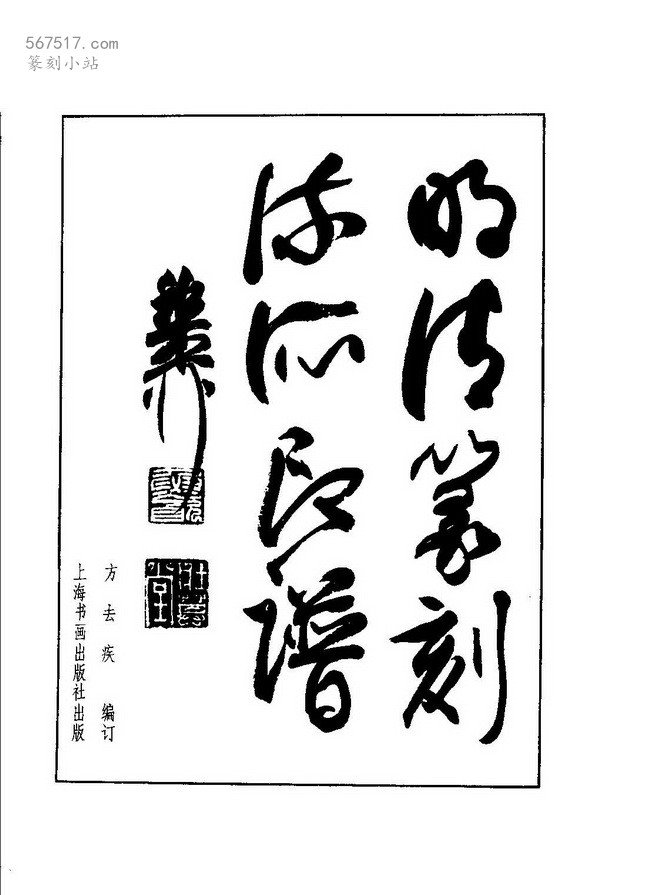 567517.com
篆刻小站
明清篆刻
流派印譜
方去疾 编订
上海书画出版社出版